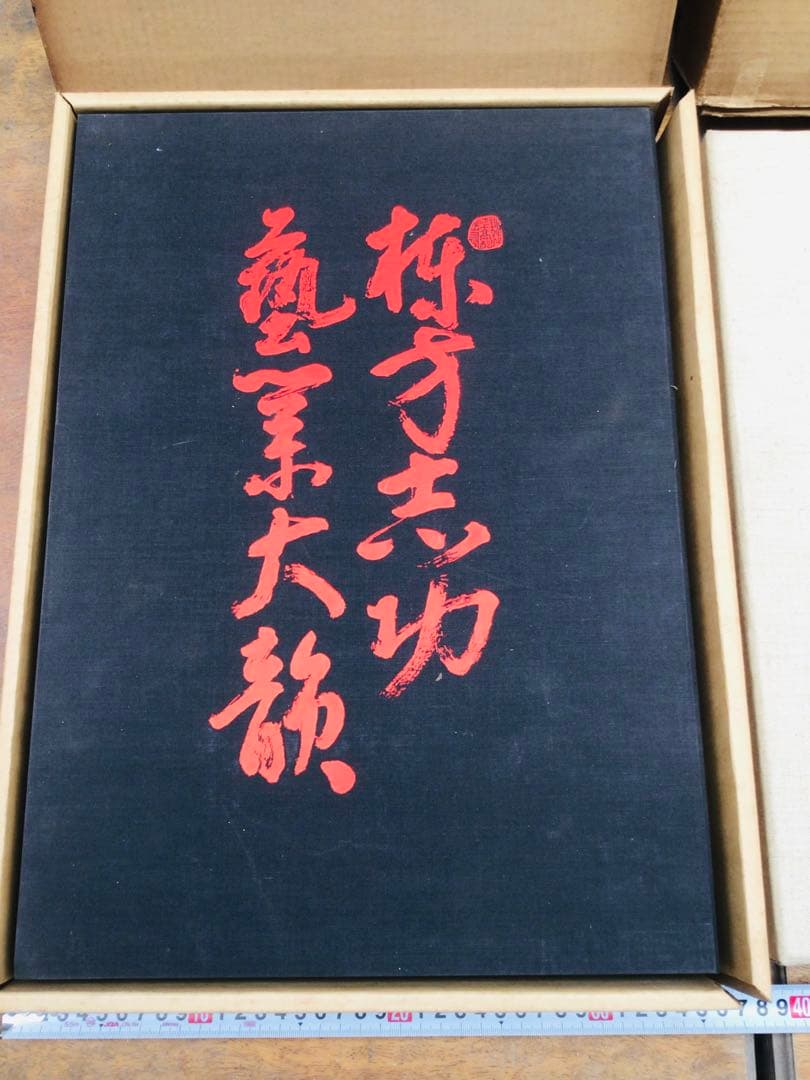 棟方志功
藝業大韻
10 20 30 40